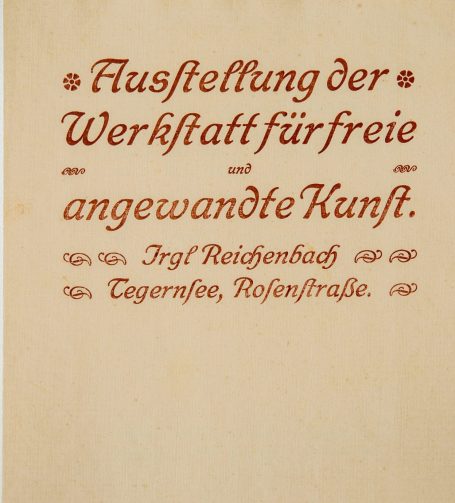 Ausſtellung der
Werkſtatt für freie
und
angewandte Kunſt.
Irgl Reichenbach
Tegernſee, Roſenſtraße.